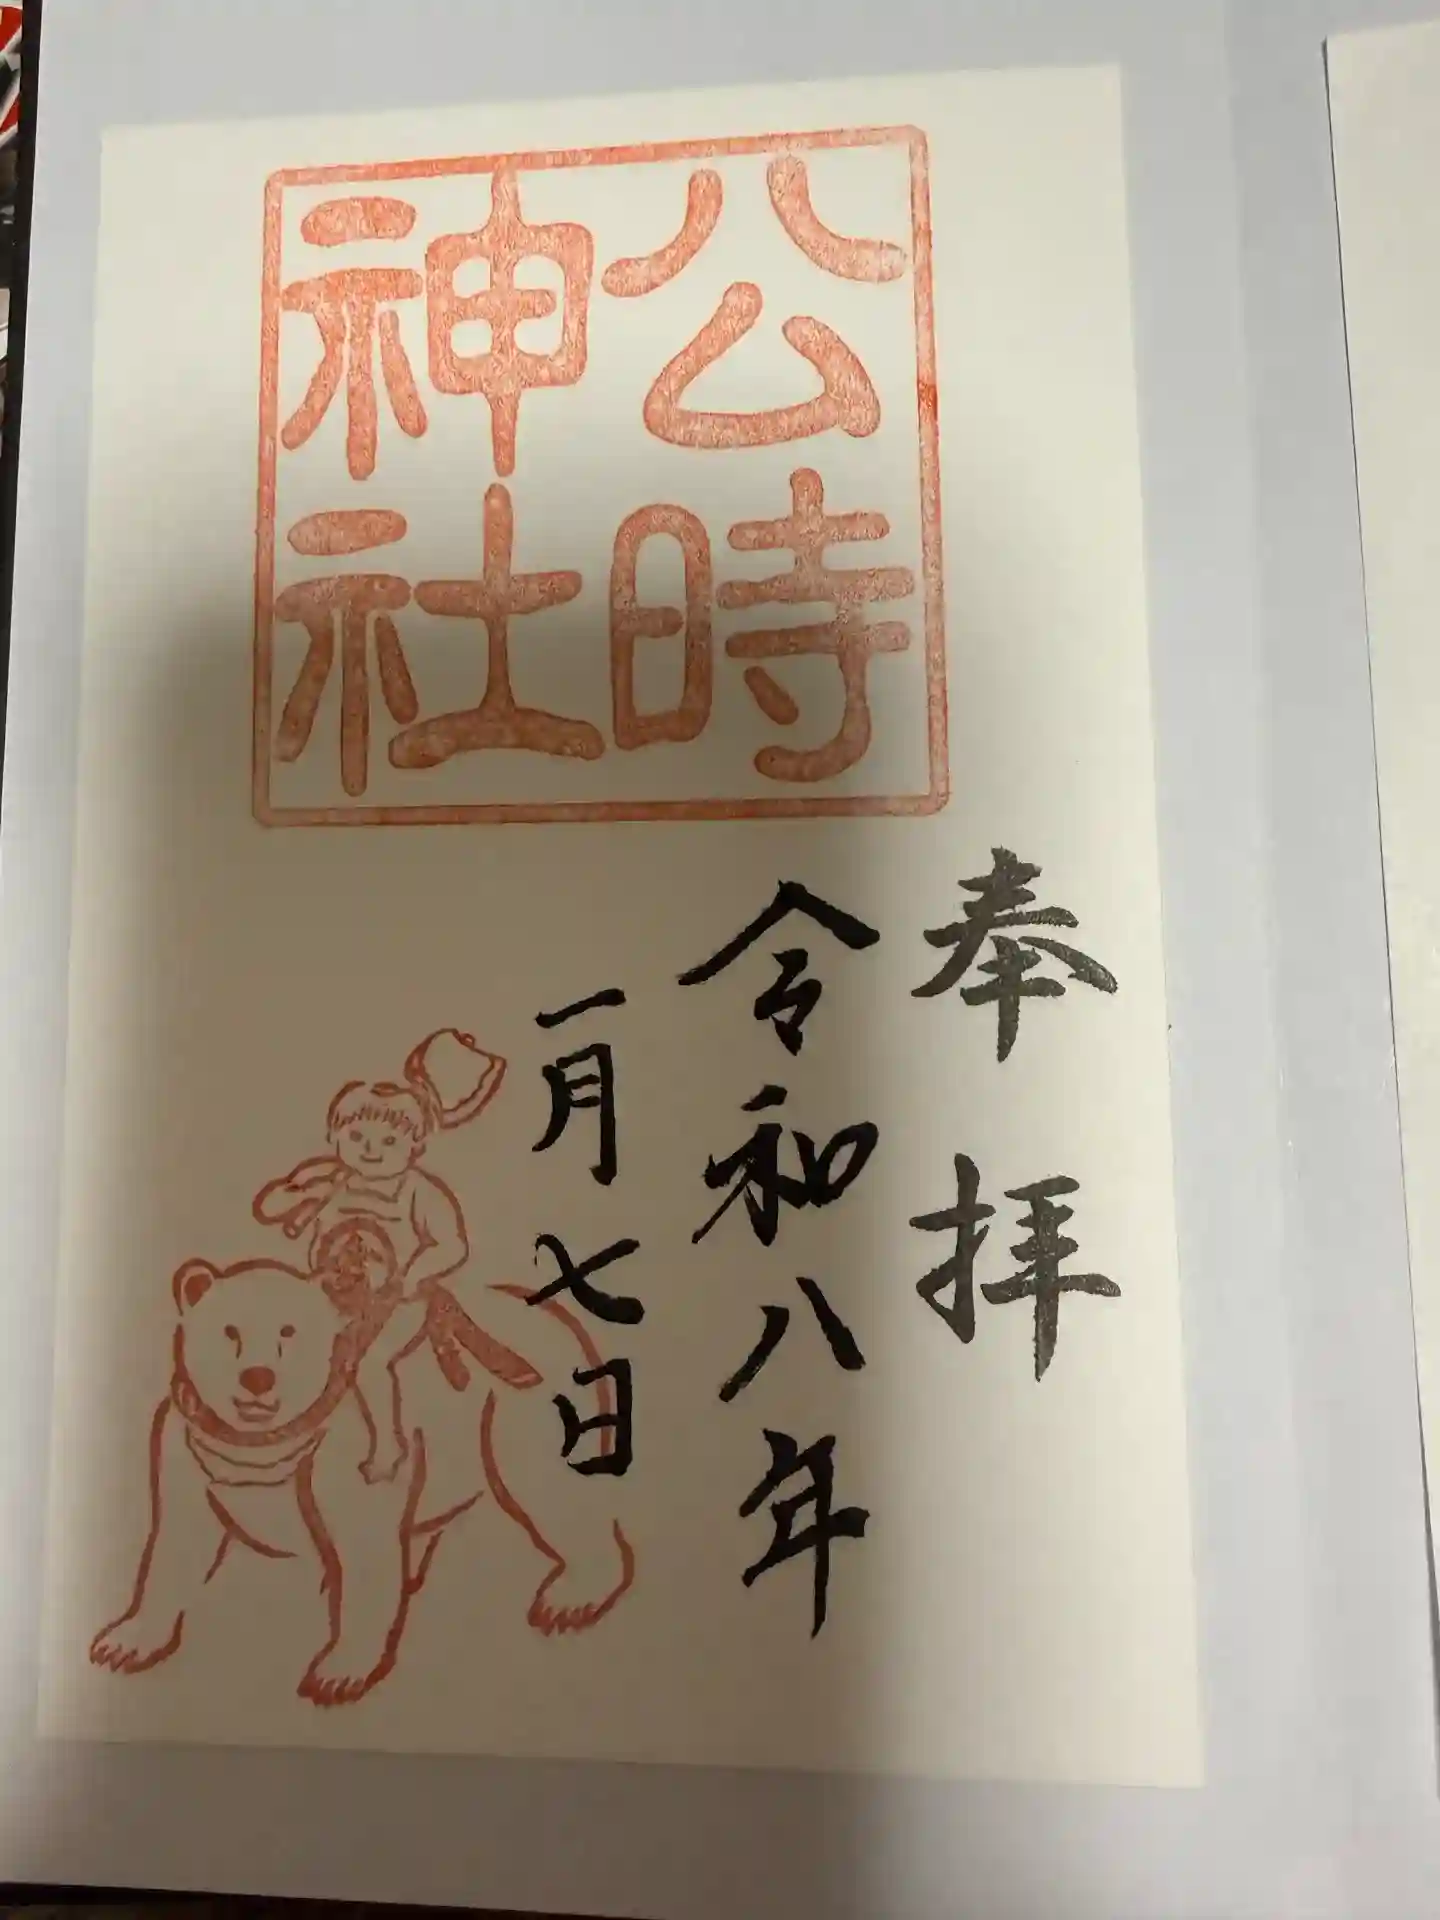 公時
神社
奉拝
令和八年
一月七日